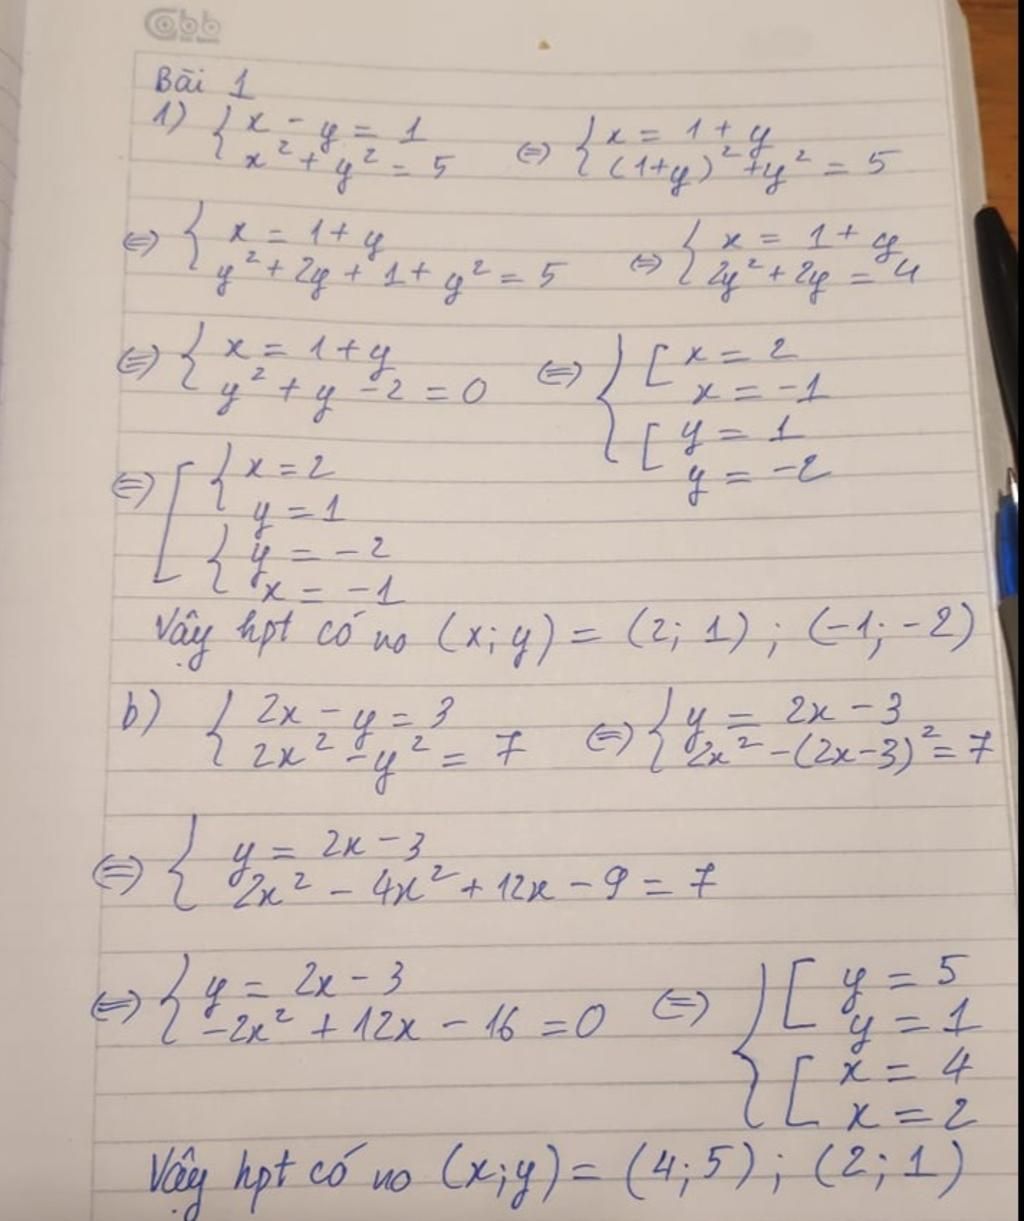 Cabb
Bài 1
1) { x - y = 1 <=> { x = 1 + y
x² + y² = 5 (1+y)² + y² = 5
<=> { x = 1 + y <=> { x = 1 + y
y² + 2y + 1 + y² = 5 2y² + 2y = 4
<=> { x = 1 + y <=> { [ x = 2
y² + y - 2 = 0 x = -1
[ y = 1
y = -2
<=> [ { x = 2
y = 1
{ y = -2
x = -1
Vậy hpt có no (x; y) = (2; 1) ; (-1; -2)
b) { 2x - y = 3 <=> { y = 2x - 3
2x² - y² = 7 2x² - (2x-3)² = 7
<=> { y = 2x - 3
2x² - 4x² + 12x - 9 = 7
<=> { y = 2x - 3 <=> { [ y = 5
-2x² + 12x - 16 = 0 y = 1
[ x = 4
x = 2
Vậy hpt có no (x; y) = (4; 5) ; (2; 1)